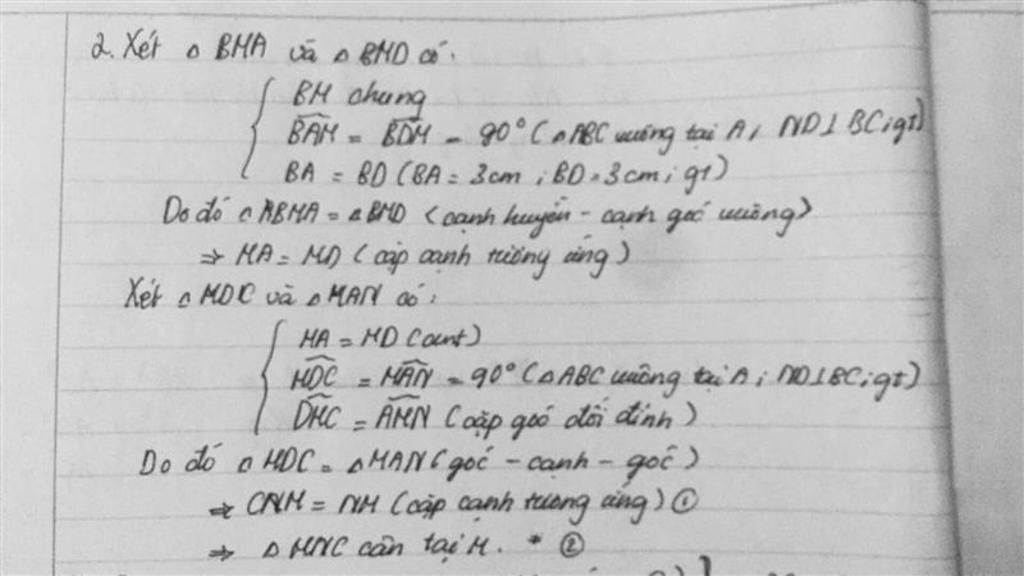 2. Xét △ BMA và △ BMD có:
BM chung
BAM = BDM = 90° (△ ABC vuông tại A; ND ⊥ BC; gt)
BA = BD (BA = 3cm; BD = 3cm; gt)
Do đó △ ABMA = △ BMD (cạnh huyền - cạnh goć vuông)
⇒ MA = MD (cặp cạnh tương ứng)
Xét △ MDC và △ MAN có:
MA = MD (cmt)
MDC = MAN = 90° (△ ABC vuông tại A; ND ⊥ BC; gt)
DMC = AMN (cặp goć đối đỉnh)
Do đó △ MDC = △ MAN (goć - cạnh - goć)
⇒ = NM (cặp cạnh tương ứng) ①
⇒ △ MNC cân tại M. * ②